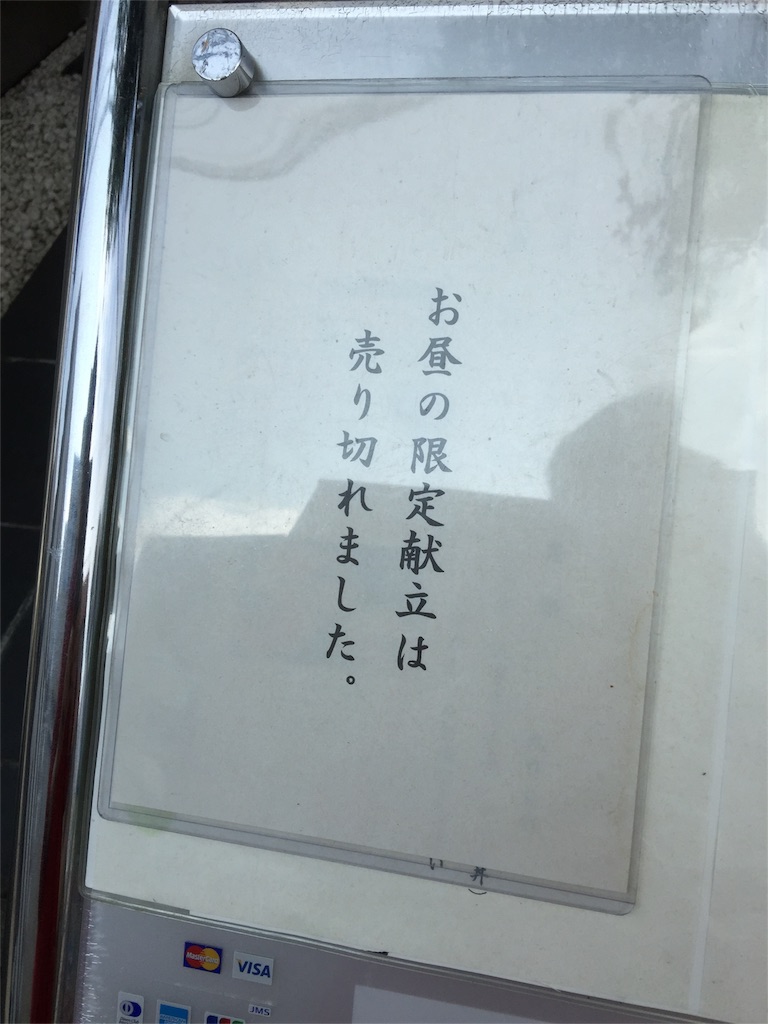 お昼の限定献立は
売り切れました。
い
MasterCard
VISA
JMS